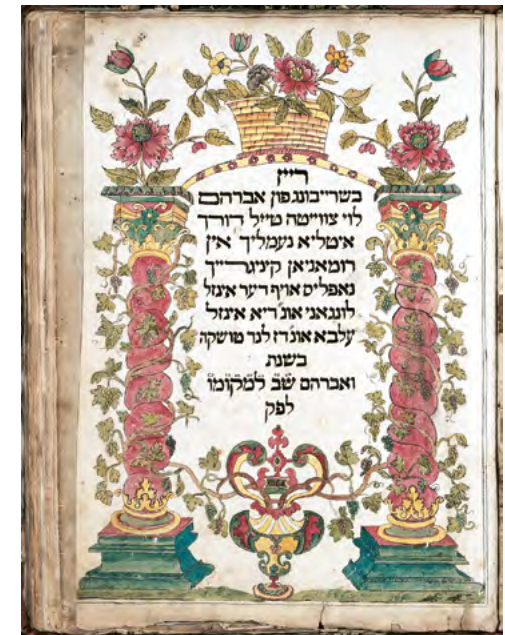 רייז
בשרייבונג פון אברהם
לוי צווייטה טייל דורך
איטליא נעמליך אין
רומאניאן קיניגרייך
נאפליס אויף דער אינזל
אינזל
עלבא אונ' דז לנד טושקה
בשנת
ואברהם שב למקומו
לפק